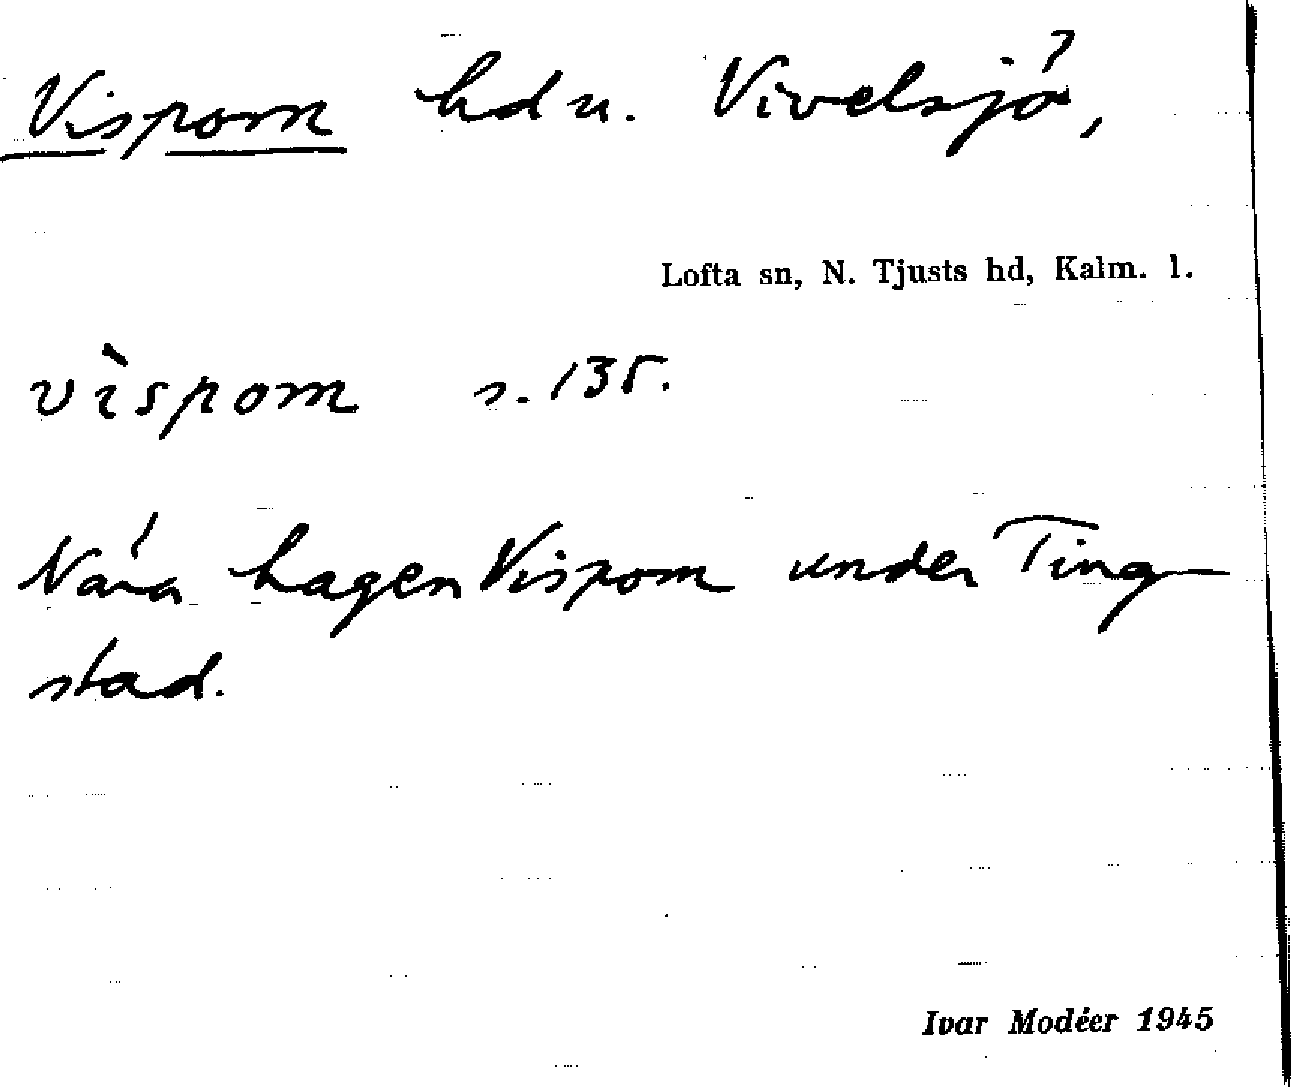 Vispom hd u. Vivelsjö,
Lofta sn, N. Tjusts hd, Kalm. l.
vìspom s. 135.
Nära hagen Vispom under Ting-
stad.
Ivar Modéer 1945